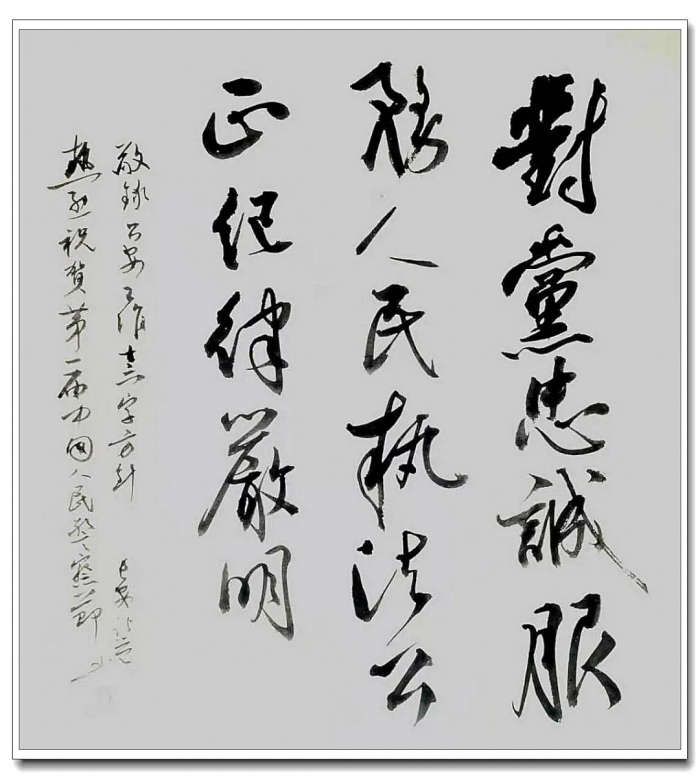 對黨忠誠服
務人民執法公
正紀律嚴明
敬錄公安工作十六字方針
熱烈祝賀第一届中國人民警察節